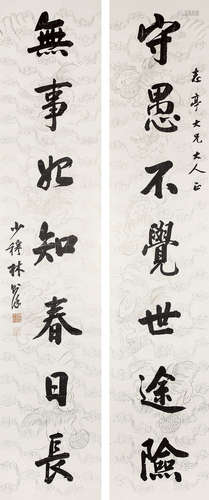 守愚不覺世途險
亭大兄大人正
無事始知春日長
少穆林則徐